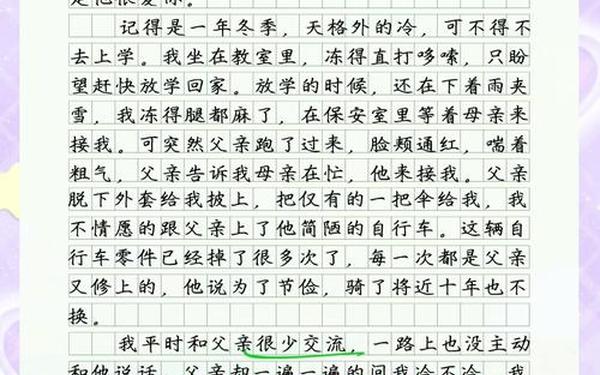 是他很爱你。
记得是一年冬季，天格外的冷，可不得不
去上学。我坐在教室里，冻得直打哆嗦，只盼
望赶快放学回家。放学的时候，还在下着雨夹
雪，我冻得腿都麻了，在保安室里等着母亲来
接我。可突然父亲跑了过来，脸颊通红，喘着
粗气，父亲告诉我母亲在忙，他来接我。父亲
脱下外套给我披上，把仅有的一把伞给我，我
不情愿的跟父亲上了他简陋的自行车。这辆自
行车零件已经掉了很多次了，每一次都是父亲
又修上的，他说为了节俭，骑了将近十年也不
换。
我平时和父亲很少交流，一路上也没主动
和他说话，父亲却一遍一遍的问我冷不冷，我